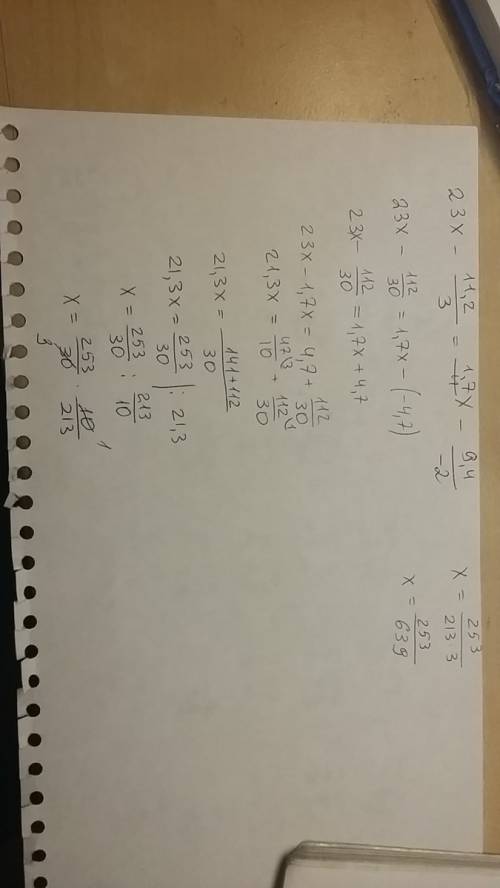 23x - 11,2/3 = 1,7/1 x - 9,4/-2
23x - 112/30 = 1,7x - (-4,7)
23x - 112/30 = 1,7x + 4,7
23x - 1,7x = 4,7 + 112/30
21,3x = 47/10 + 112/30
21,3x = 141+112/30
21,3x = 253/30 | : 21,3
x = 253/30 : 213/10
x = 253/30 · 10/213
x = 253/213 3
x = 253/639